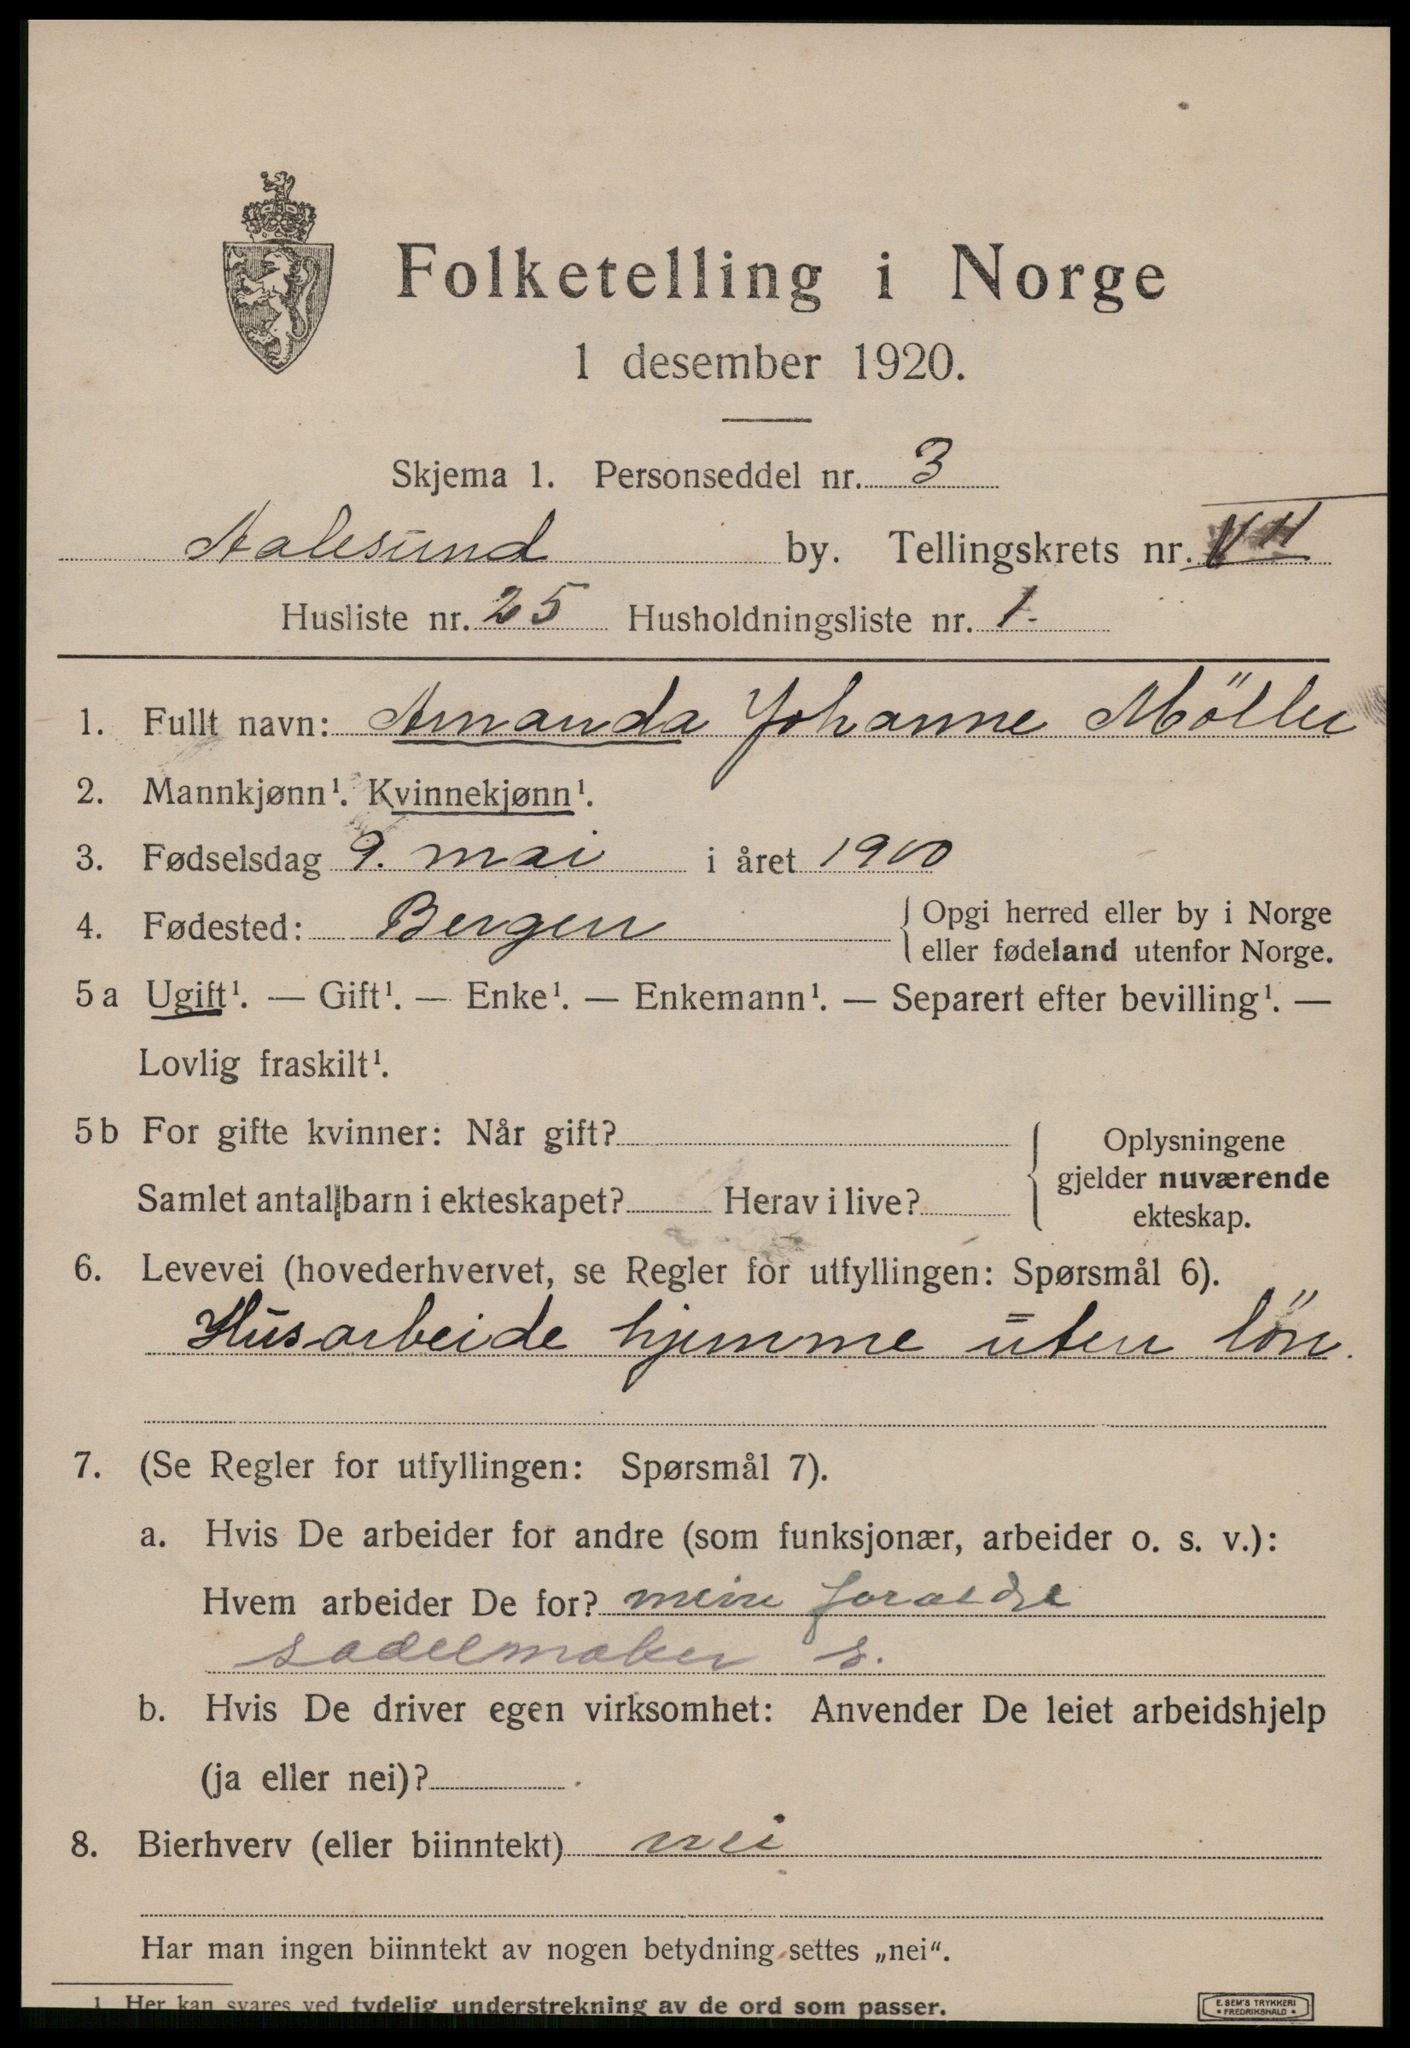 Folketelling i Norge
1 desember 1920.
Skjema 1. Personseddel nr. 3
Aalesund by. Tellingskrets nr. VII
Husliste nr. 25 Husholdningsliste nr. 1.
1. Fullt navn: Amanda Johanne Möller
2. Mannkjønn¹. Kvinnekjønn¹.
3. Fødselsdag 9. mai i året 1900
4. Fødested: Bergen { Opgi herred eller by i Norge
eller fødeland utenfor Norge.
5 a Ugift¹. — Gift¹. — Enke¹. — Enkemann¹. — Separert efter bevilling¹. —
Lovlig fraskilt¹.
5 b For gifte kvinner: Når gift?
Samlet antal barn i ekteskapet? Herav i live?
Oplysningene
gjelder nuværende
ekteskap.
6. Levevei (hovederhvervet, se Regler for utfyllingen: Spørsmål 6).
Husarbeide hjemme uten lön.
7. (Se Regler for utfyllingen: Spørsmål 7).
a. Hvis De arbeider for andre (som funksjonær, arbeider o. s. v.):
Hvem arbeider De for? mine foraldre
sadelmaker s.
b. Hvis De driver egen virksomhet: Anvender De leiet arbeidshjelp
(ja eller nei)?
8. Bierhverv (eller biinntekt) nei
Har man ingen biinntekt av nogen betydning settes „nei“.
1. Her kan svares ved tydelig understrekning av de ord som passer.
E. SEM'S TRYKKERI
• FREDRIKSHALD •